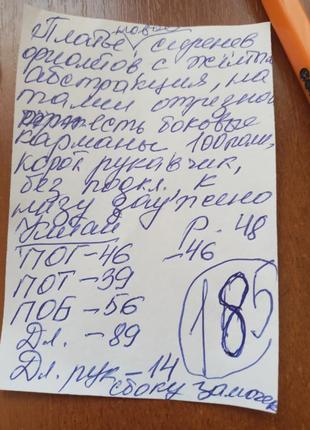 новое
Платье сиренев
фиолетов с жёлт
абстракция, на
талии отрезной
есть боковые
карманы 100пол.,
корот рукавчик,
без подкл. к
низу заужено
Китай Р - 48
-46
ПОГ-46
ПОТ-39
ПОБ-56
Дл. -89
185
Дл. рук -14
сбоку замочек